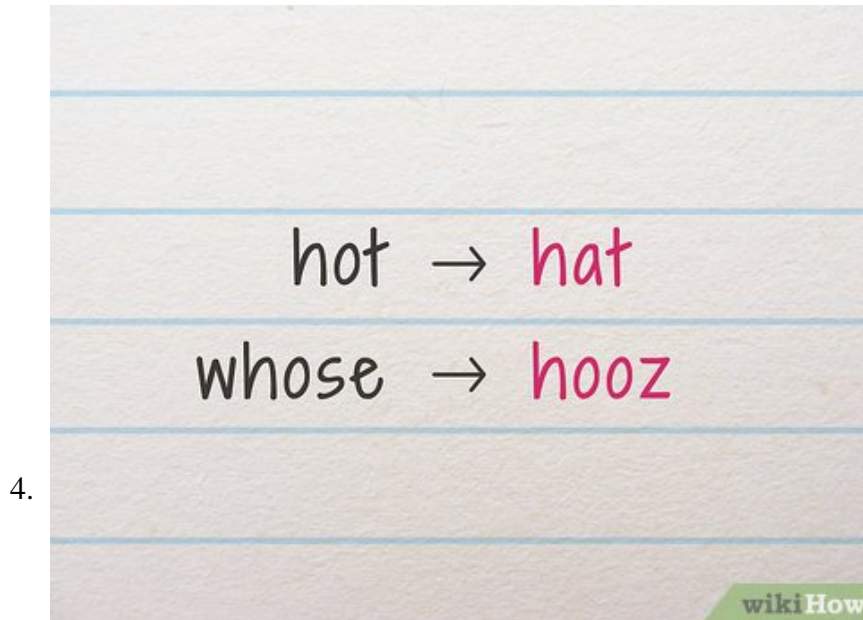 hot → hat
whose → hooz
4.
wikiHow